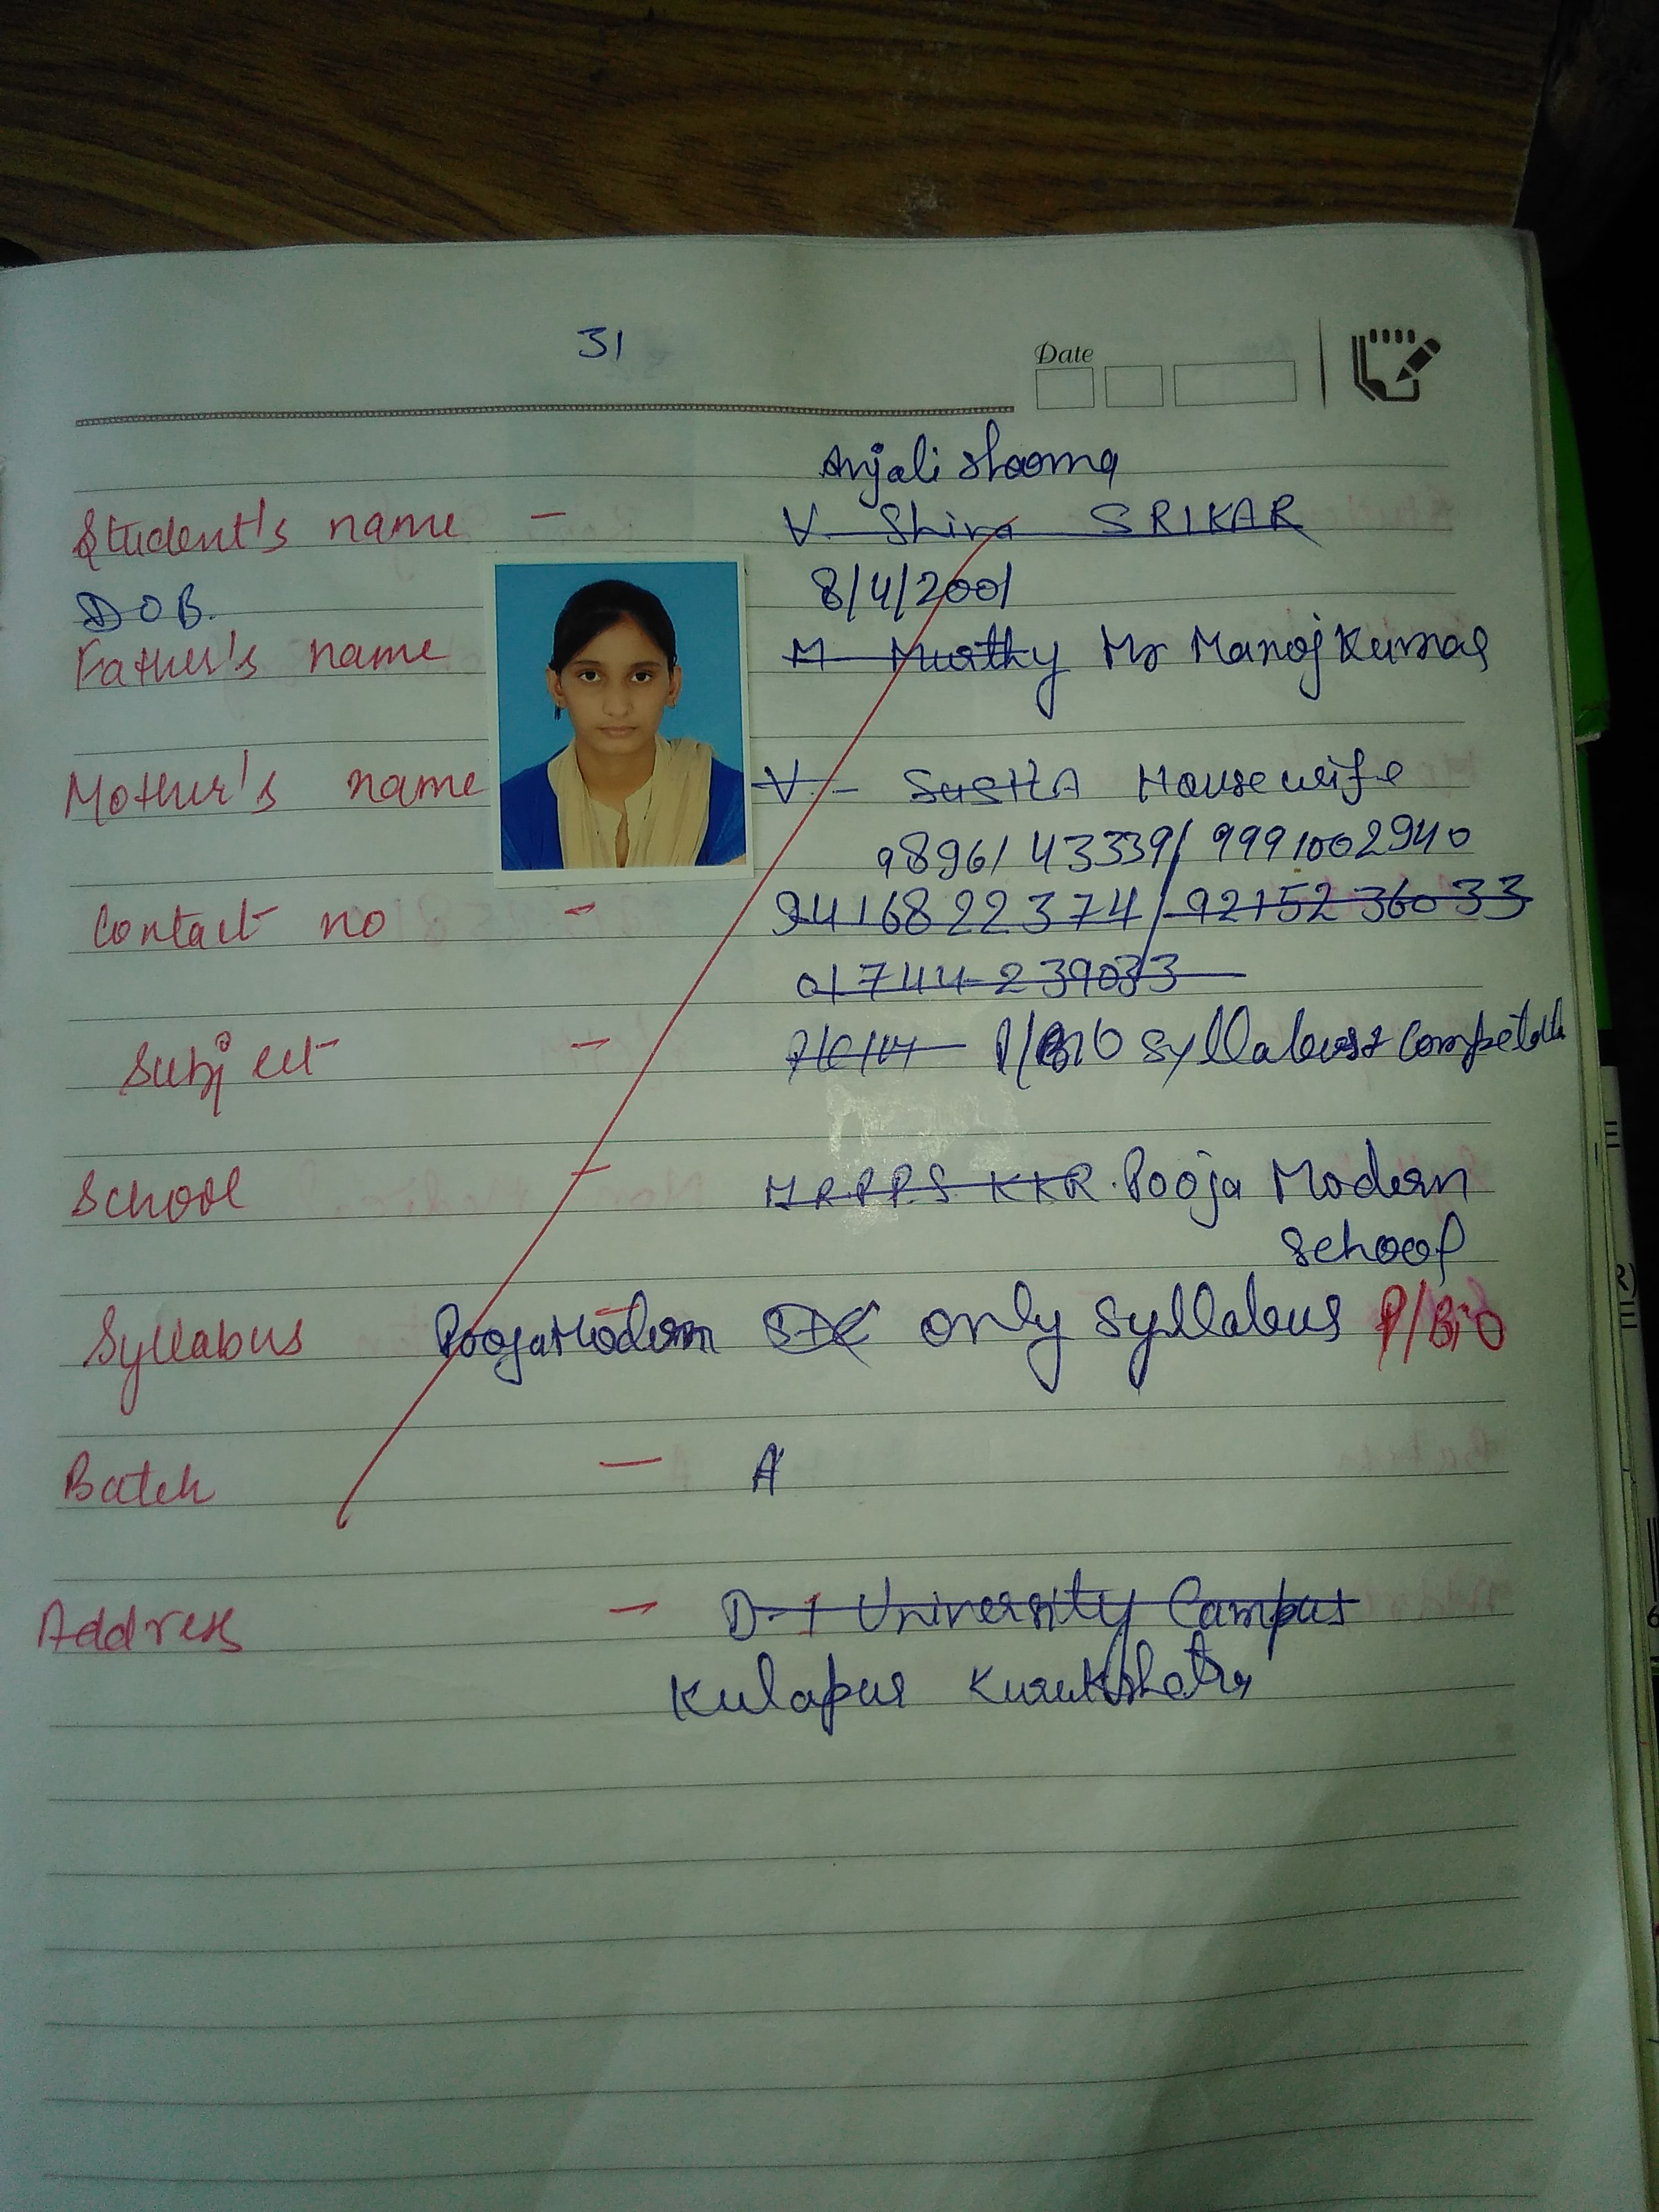 31
Date
Anjali Sharma
Student's name - V. Shiva SRIKAR
DOB. 8/4/2001
Father's name M Murthy Mr Manoj Kumar
Mother's name V. - House wife
98961 43339/ 9991002940
Contact no - 9416822374/ 92152 36033
01744-239033
Subject - P/BIO Syllabus+
School - M.R.P.P.S. KKR. Pooja Modern
School
Syllabus - Pooja Modern only Syllabus P/Bio
Batch - A
Address - D-1 University Campus
Kurukshetra